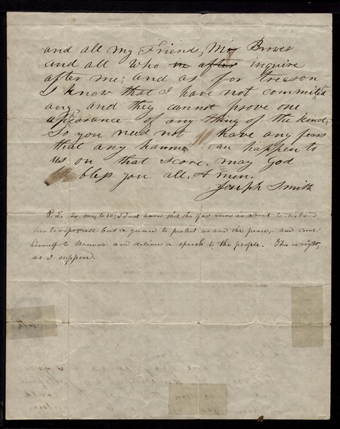 and all my Friend, Mr Brower
and all who in after inquire
after me; and as for treason
I know that I have not commited
any and they cannot prove one
apearance of any thing of the kind,
So you need not have any fears
that any harme can happen to
us on that score, may God
bless you all, Amen.
Joseph Smith
P.S. 20 mi to 10; I just learn that the Gov. is about to disband
all but a guard to protect us and the peace, and come
himself to Nauvoo and deliver a speech to the people. This is right,
as I suppose.